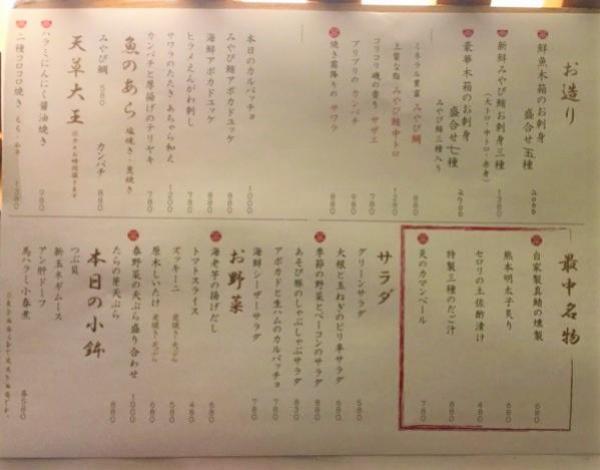 お造り
鮮魚木箱のお刺身
盛合せ五種
新鮮みやび鯛お刺身三種
(大トロ・中トロ・赤身)
1380
豪華木箱のお刺身
盛合せ七種
みやび鯛三種入り
ミネラル豊富 みやび鯛
880
上質な脂 みやび鯛中トロ
1280
コリコリ磯の香り サザエ
980
プリプリの カンパチ
780
焼き霜降りの サワラ
本日のカルパッチョ
1000
みやび鮪アボカドユッケ
880
海鮮アボカドユッケ
880
ヒラメえんがわ刺し
780
サワラのたたき あちゃら和え
1200
カンパチと厚揚げのテリヤキ
780
魚のあら 塩焼き・煮焼き
みやび鯛 580
カンパチ 880
天草大王
ハラミにんにく醤油焼き
980
二種コロコロ焼き
1380
最中名物
自家製真鯖の燻製
680
熊本明太子炙り
680
セロリの土佐酢漬け
480
特製三種のだご汁
680
炙のカマンベール
780
サラダ
グリーンサラダ
580
大根と玉ねぎのピリ辛サラダ
680
季節の野菜とベーコンのサラダ
880
あそび豚のしゃぶしゃぶサラダ
830
アボカドと生ハムのカルパッチョ
780
海鮮シーザーサラダ
780
お野菜
海老芋の揚げだし
680
トマトスライス
480
ズッキーニ
580
原木しいたけ
680
春野菜の天ぷら盛り合わせ
1000
たらの芽天ぷら
680
本日の小鉢
つぶ貝
新玉ネギムース
アン肝ドーフ
馬ハラミ小春煮
各580